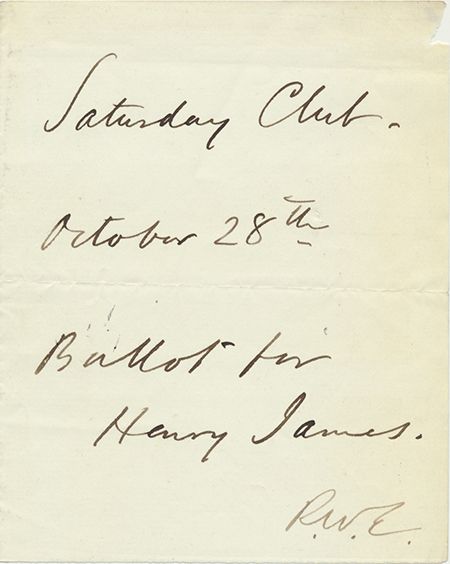 Saturday Club.
October 28th
Ballot for
Henry James.
R.W.E.